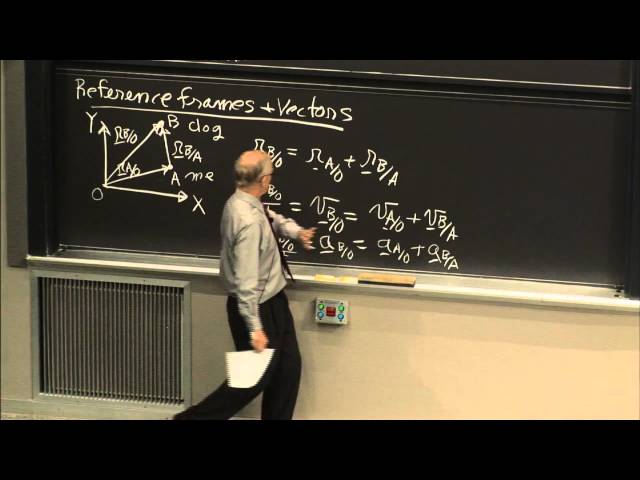 Reference frames + Vectors
Y B dog
r B/O r B/A
r A/O A me
O X
r B/O = r A/O + r B/A
B/O = v B/O = v A/O + v B/A
/O = a B/O = a A/O + a B/A